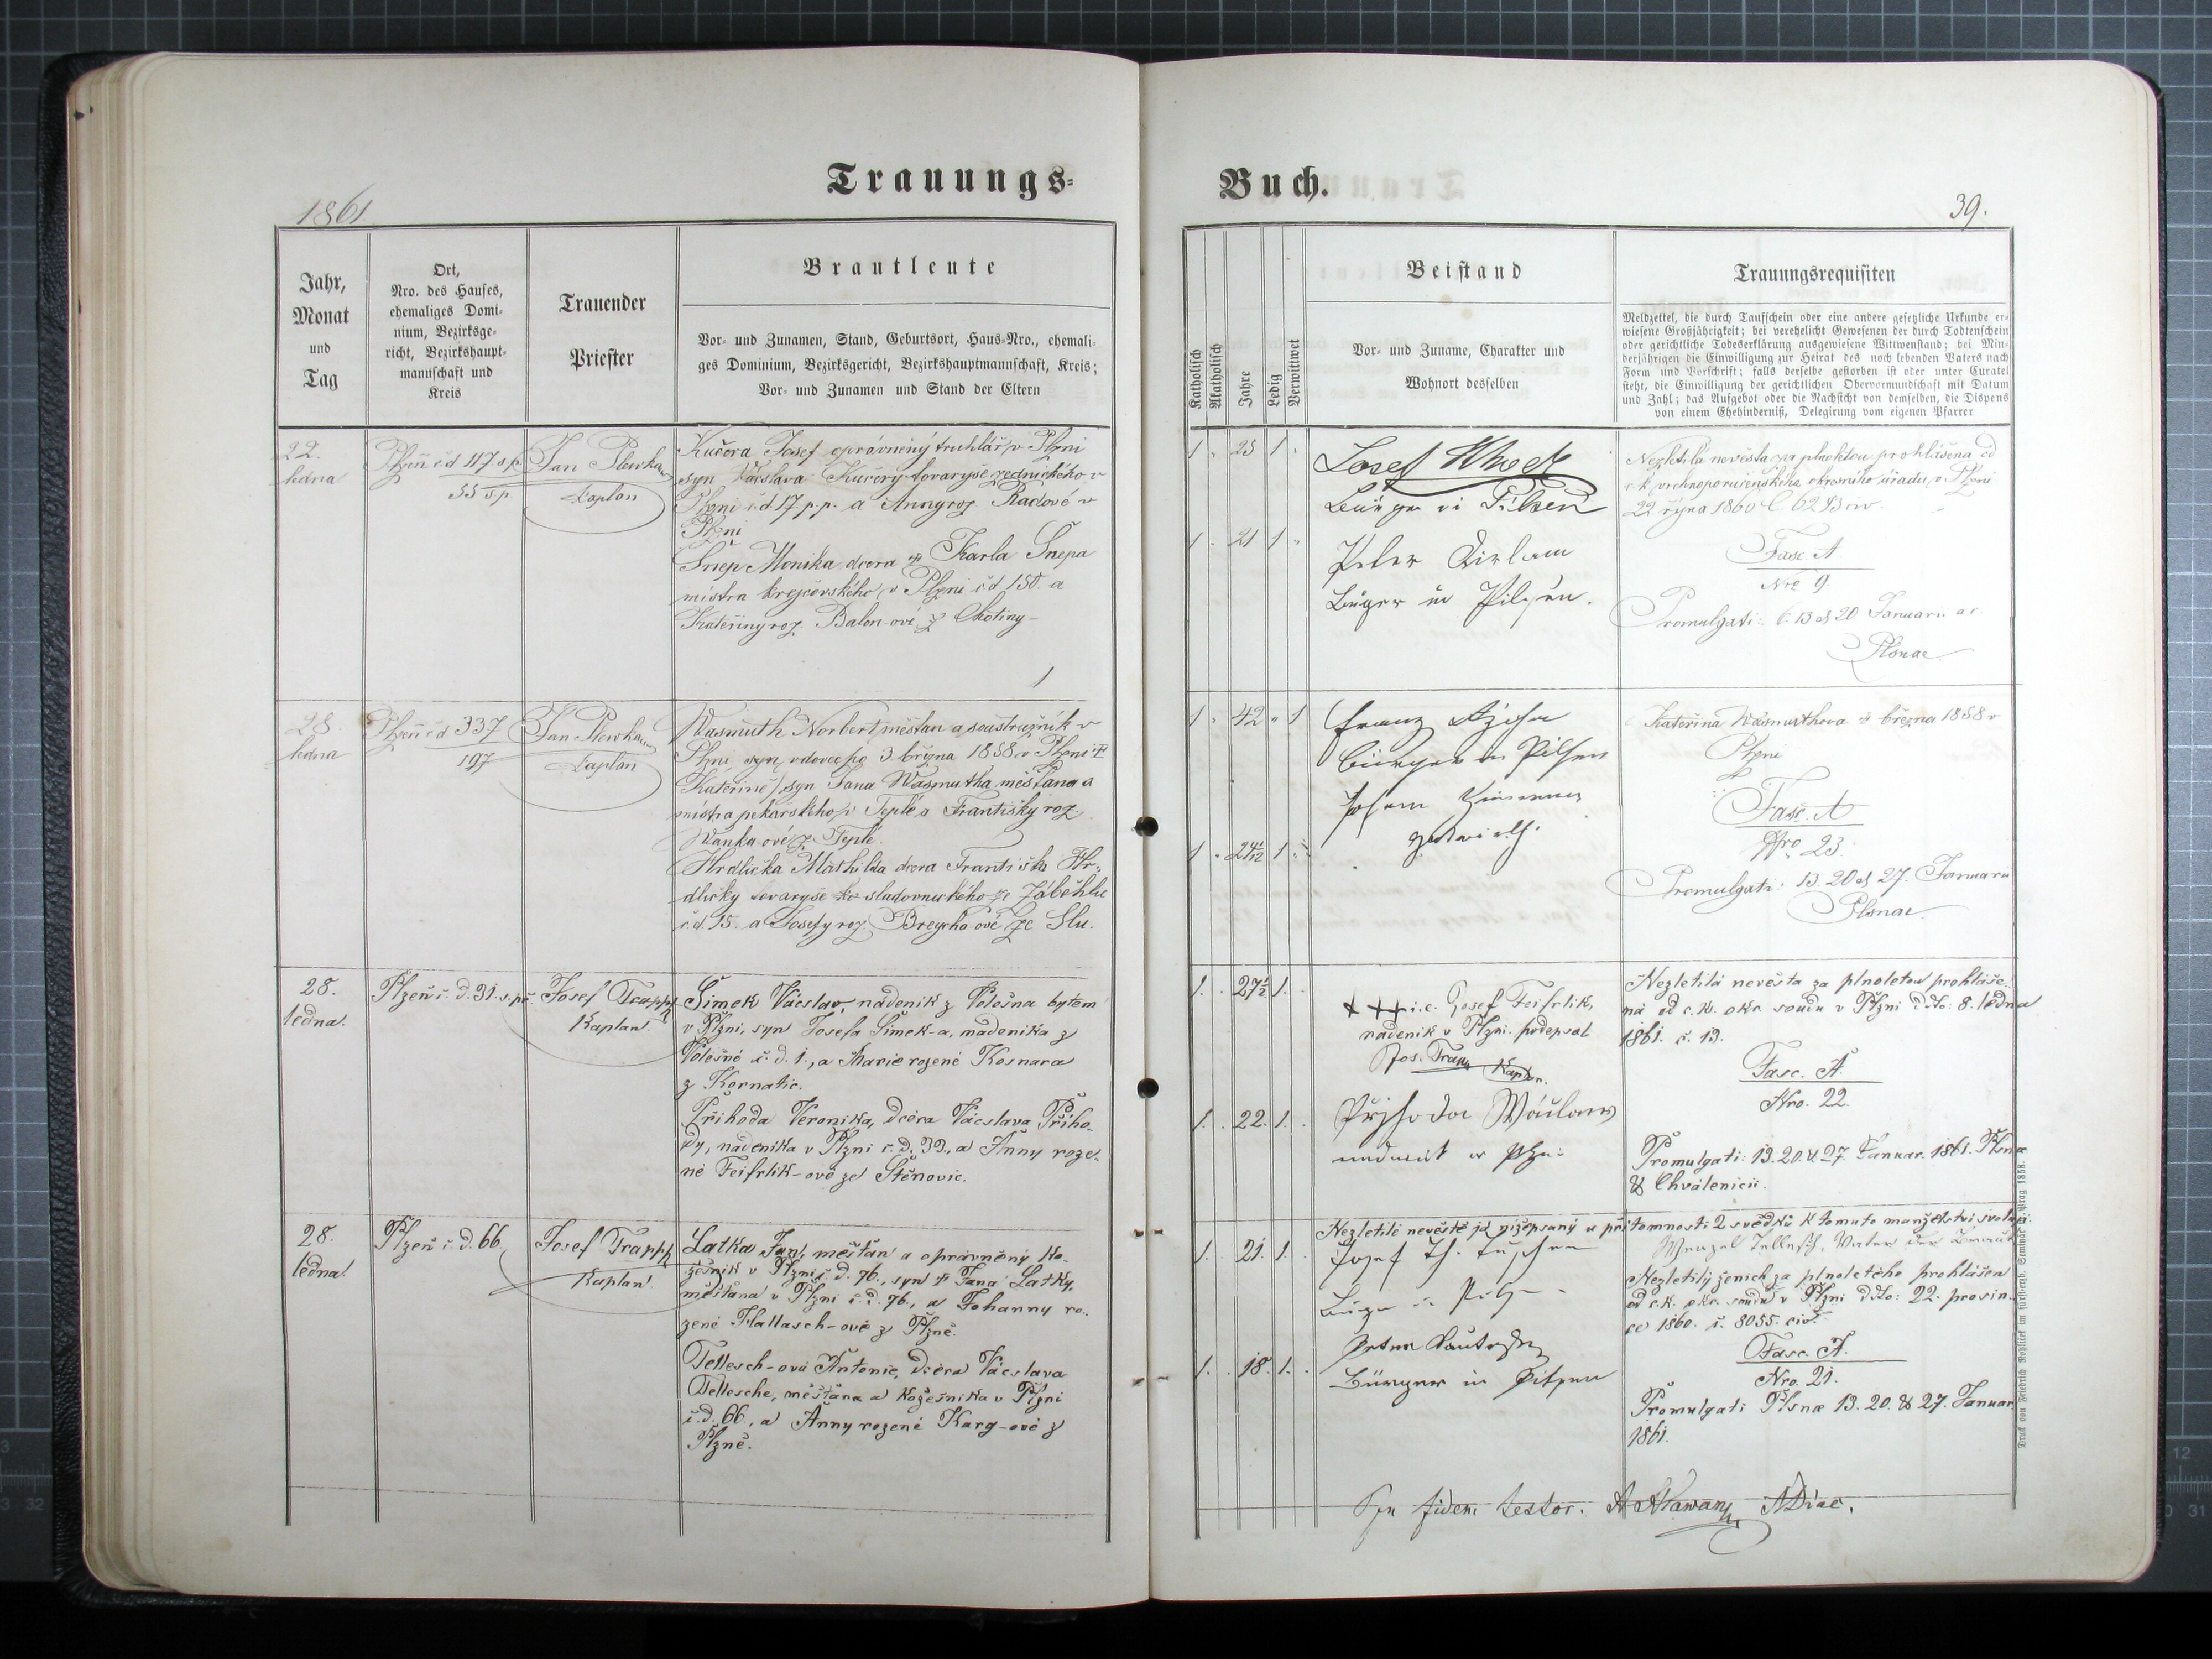 Trauungs-
Buch.
1861
39.
Jahr,
Monat
und
Tag
Ort,
Nro. des Hauses,
ehemaliges Domi-
nium, Bezirksge-
richt, Bezirkshaupt-
mannschaft und
Kreis
Trauender
Priester
Brautleute
Vor- und Zunamen, Stand, Geburtsort, Haus-Nro., ehemali-
ges Dominium, Bezirksgericht, Bezirkshauptmannschaft, Kreis;
Vor- und Zunamen und Stand der Eltern
Katholisch
Akatholisch
Jahre
Ledig
Verwittwet
Beistand
Vor- und Zuname, Charakter und
Wohnort desselben
Trauungsrequisiten
Meldzettel, die durch Taufschein oder eine andere gesetzliche Urkunde er-
wiesene Großjährigkeit; bei verehelicht Gewesenen der durch Todtenschein
oder gerichtliche Todeserklärung ausgewiesene Witwenstand; bei Min-
derjährigen die Einwilligung zur Heirat des noch lebenden Vaters nach
Form und Vorschrift; falls derselbe gestorben ist oder unter Curatel
steht, die Einwilligung der gerichtlichen Obervormundschaft mit Datum
und Zahl; das Aufgebot oder die Nachsicht von demselben, die Dispens
von einem Ehehinderniß, Delegirung vom eigenen Pfarrer
22.
ledna
Plzeň čd 117 s.p.
55 sp
Jan Plewka
Kaplan
Kučera Josef oprávněný truhlář v Plzni
syn Václava Kučery tovaryše zednického v
Plzni čd 17 p.p. a Anny roz. Radové v
Plzni
Šnep Monika dcera Karla Šnepa
mistra krejčovského v Plzni čd 150. a
Kateřiny roz. Balon-ové z
1
1 25 1
1 21 1
Josef
Bürger in Pilsen
Peter
Bürger in Pilsen.
Nezletilá nevěsta za plnoletou prohlášena od
c.k. vrchnoporučenského okresního úřadu v Plzni
22 října 1860 č. 6243 civ.
Fasc A
Nro 9.
Promulgati: 6. 13 et 20 Januari a c
Plsnae
28.
ledna
Plzeň čd 337
197
Jan Plewka
Kaplan
Wasmuth Norbert měšťan a soustružník v
Plzni, syn, vdovec po 3 března 1858 v Plzni
Kateřině, syn Jana Wasmutha měšťana a
mistra pekařského v Teplé a Františky roz.
Wanka-ové z Teplé.
Hrdlička Mathilda dcera Františka Hr-
dličky tovaryše sladovnického ze Záběhlic
č.d. 15. a Josefy roz. Brejcha-ové ze Slu.
1 42 1
1 24 1
Franz
Bürger in Pilsen
Johann
Kateřina Wasmuthova března 1858 v
Plzni
Fasc. A
Nro 23.
Promulgati: 13. 20 et 27. Januarii
Plsnae
28.
ledna.
Plzeň č. d. 31. s.př.
Josef Trapp
Kaplan.
Šimek Václav, nádeník z Volešna bytem
v Plzni, syn Josefa Šimek-a, nádeníka z
Volešné č. d. 1., a Marie rozené Kosnara
z Kornatic.
Příhoda Veronika, dcera Václava Přího-
dy, nádeníka v Plzni č. d. 33., a Anny roze-
né Feifrlik-ové ze Štěnovic.
1. 27½ 1.
1. 22. 1.
+++ i.e. Josef Feifrlik,
nádeník v Plzni. podepsal
Jos. Trapp Kaplan.
Přjhoda Wáclaw
Nezletilá nevěsta za plnoletou prohláše-
ná od c.k. okr. soudu v Plzni ddto: 8. ledna
1861. č. 13.
Fasc. A.
Nro. 22.
Promulgati: 13. 20. & 27. Januar. 1861. Plsnae
& Chválenicii.
28.
ledna.
Plzeň č. d. 66.
Josef Trapp
Kaplan.
Latka Jan, měšťan a oprávněný ko-
žešník v Plzni č. d. 76., syn Jana Latky,
měšťana v Plzni č. d. 76., a Johanny ro-
zené Hallasch-ové z Plzně.
Tellesch-ová Antonie, dcera Václava
Tellesche, měšťana a kožešníka v Plzni
č. d. 66., a Anny rozené Karg-ové z
Plzně.
1. 21. 1.
1. 18. 1.
Nezletilé nevěstě já nížepsaný u přítomnosti 2 svědků k tomuto manželství svoluji.
Wenzel Tellesch, Vater der Braut
Josef
Bürger in Pilsen
Nezletilý ženich za plnoletého prohlášen
od c.k. okr. soudu v Plzni ddto: 22. prosin-
ce 1860. č. 8055. civ.
Fasc. A.
Nro. 21.
Promulgati Plsnae 13. 20. & 27. Januar.
1861.
fidem testor.
Druck von Friedrich Rohliček im fürsterzb. Seminär Prag 1858.